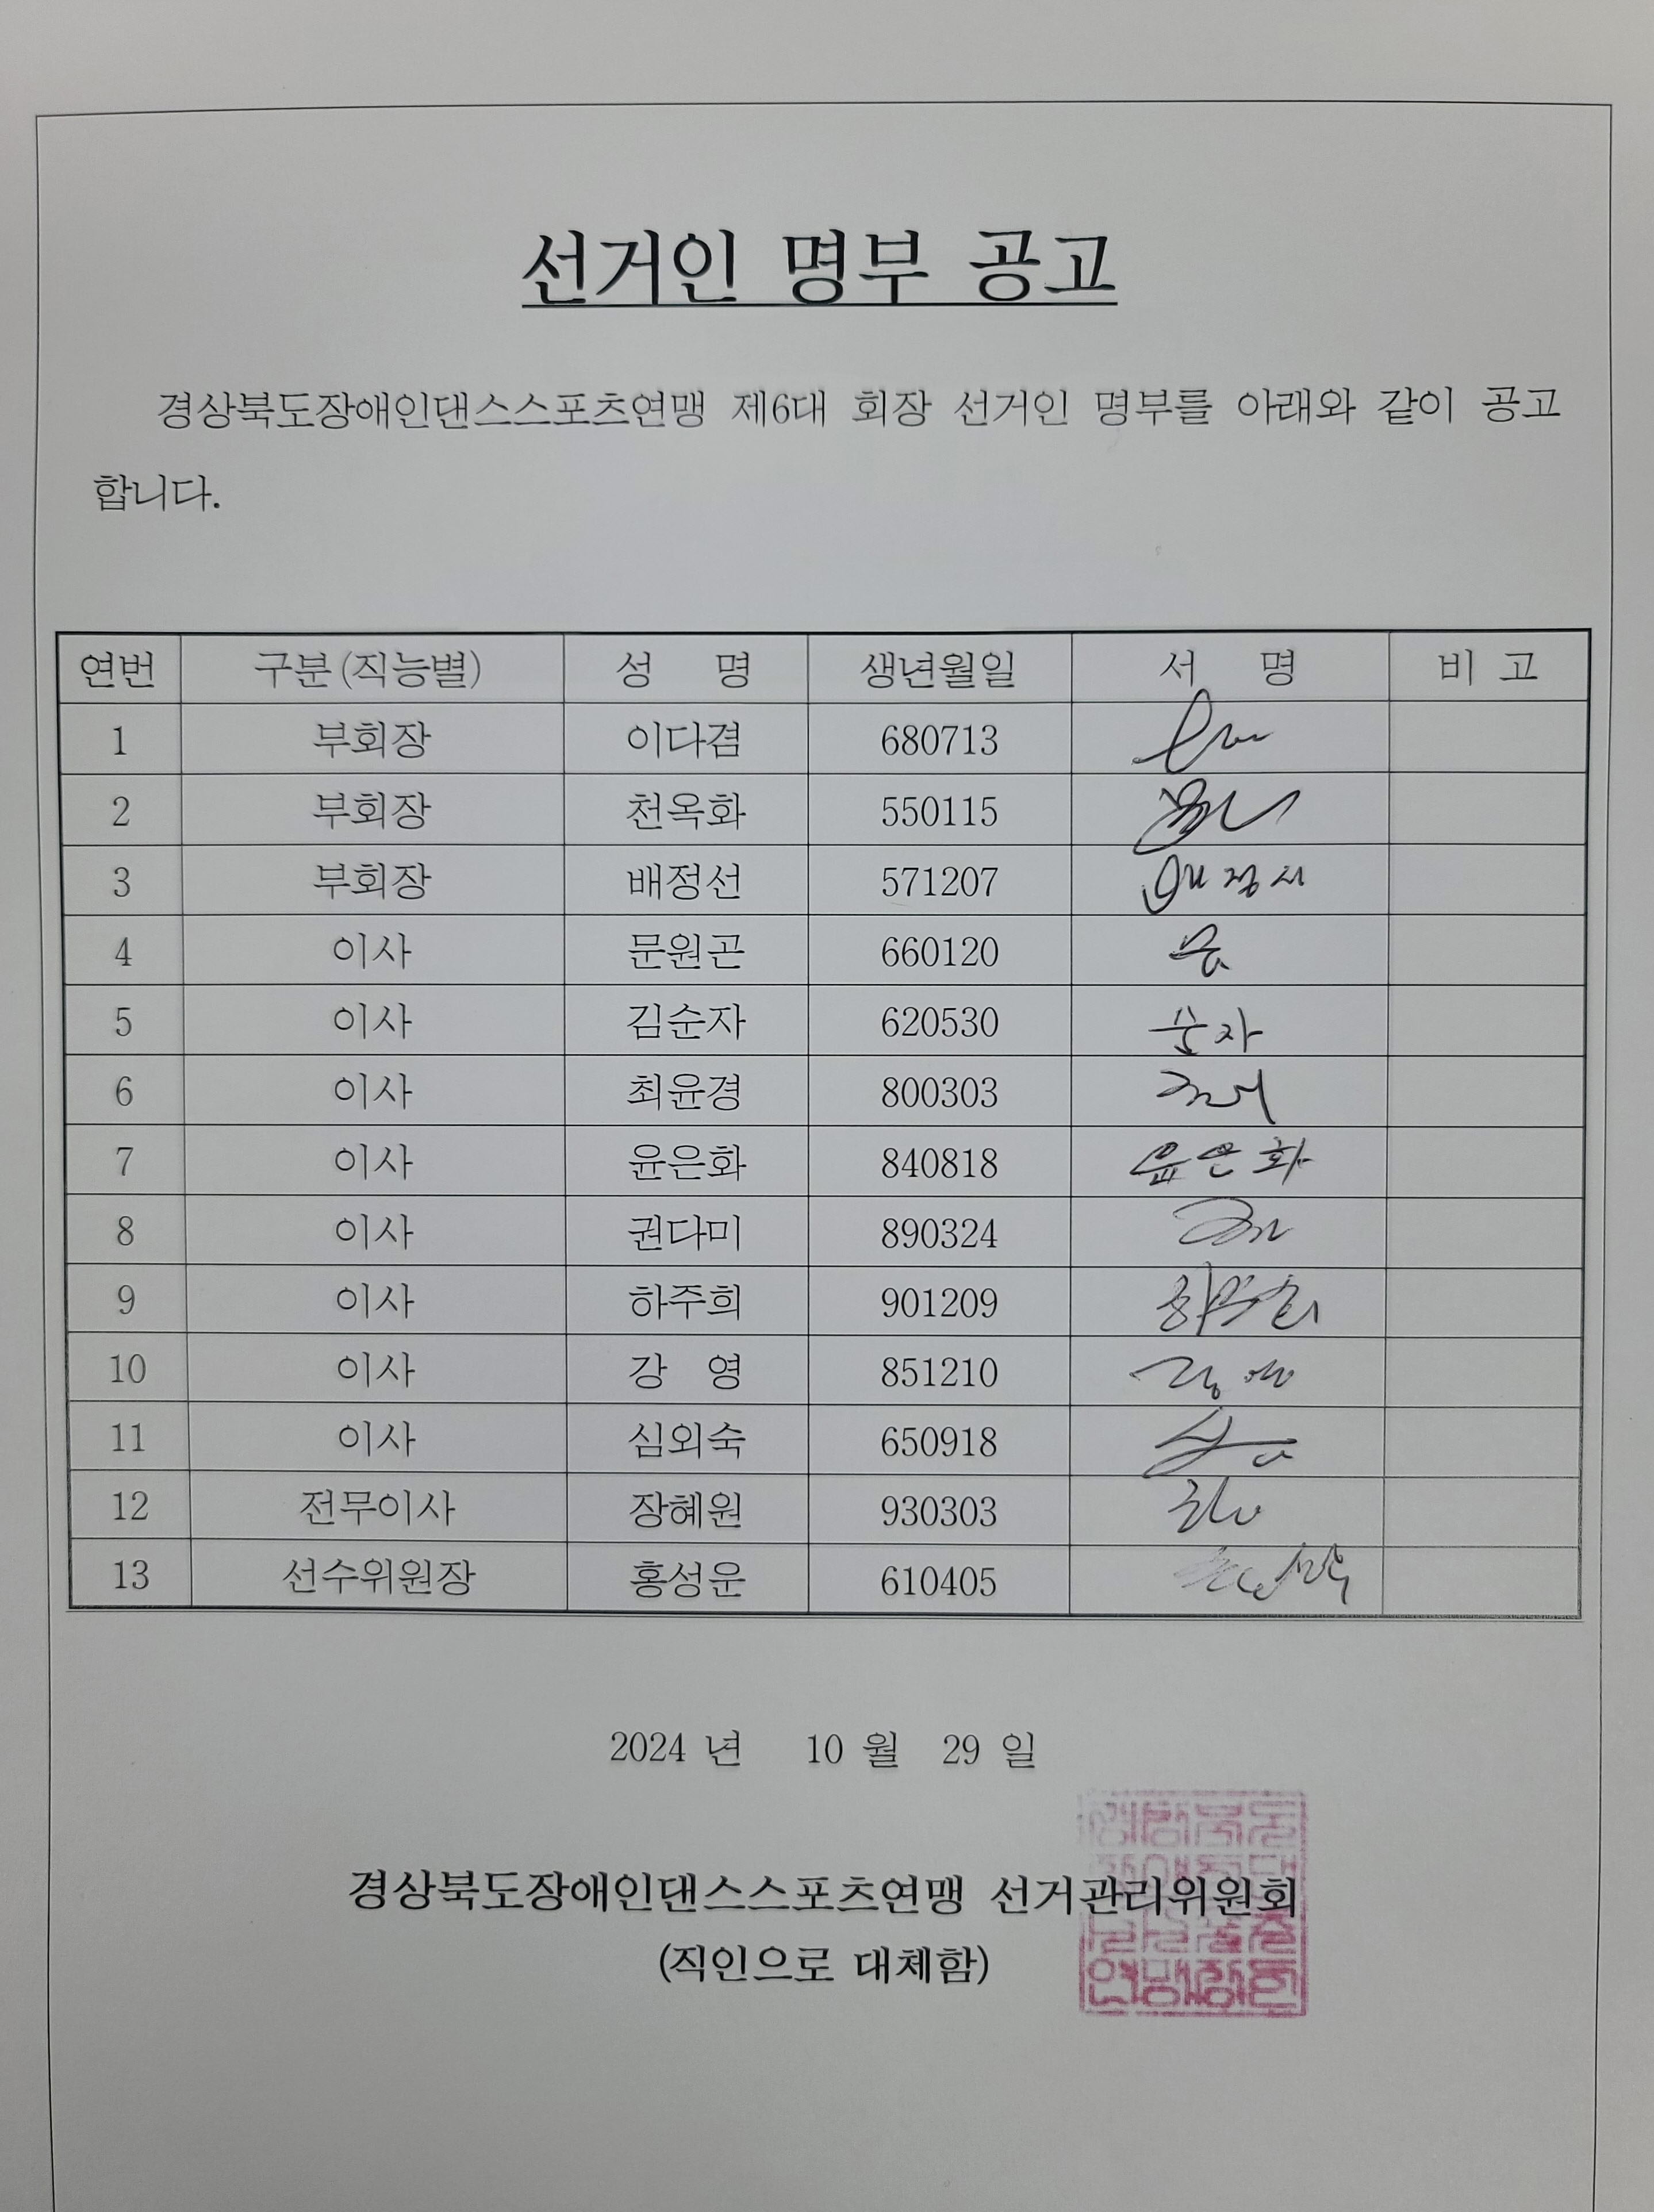 선거인 명부 공고
경상북도장애인댄스스포츠연맹 제6대 회장 선거인 명부를 아래와 같이 공고
합니다.
연번 구분(직능별) 성 명 생년월일 서 명 비 고
1 부회장 이다겸 680713
2 부회장 천옥화 550115
3 부회장 배정선 571207
4 이사 문원곤 660120
5 이사 김순자 620530 순자
6 이사 최윤경 800303
7 이사 윤은화 840818 윤은화
8 이사 권다미 890324
9 이사 하주희 901209 하주희
10 이사 강 영 851210
11 이사 심외숙 650918
12 전무이사 장혜원 930303
13 선수위원장 홍성운 610405
2024 년 10 월 29 일
경상북도장애인댄스스포츠연맹 선거관리위원회
(직인으로 대체함)